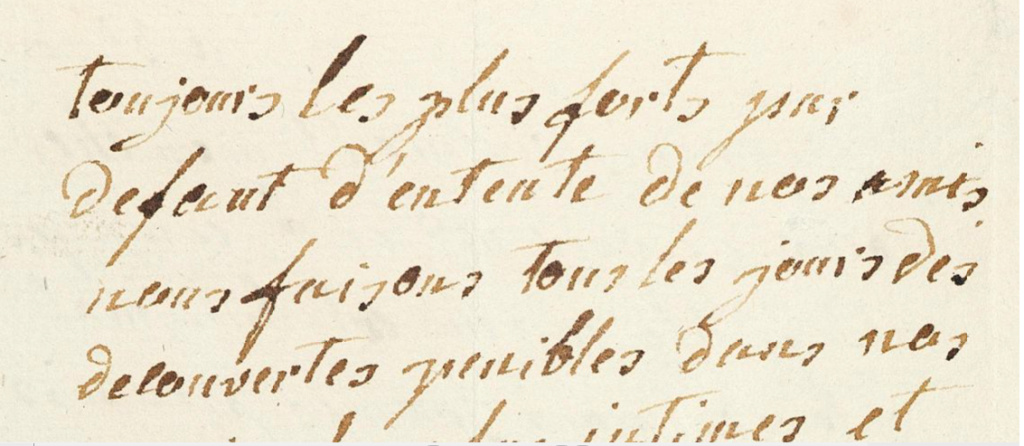 toujours les plus forts par
defaut d'entente de nos amis
nous faisons tous les jours des
decouvertes penibles dans nos
plus intimes et